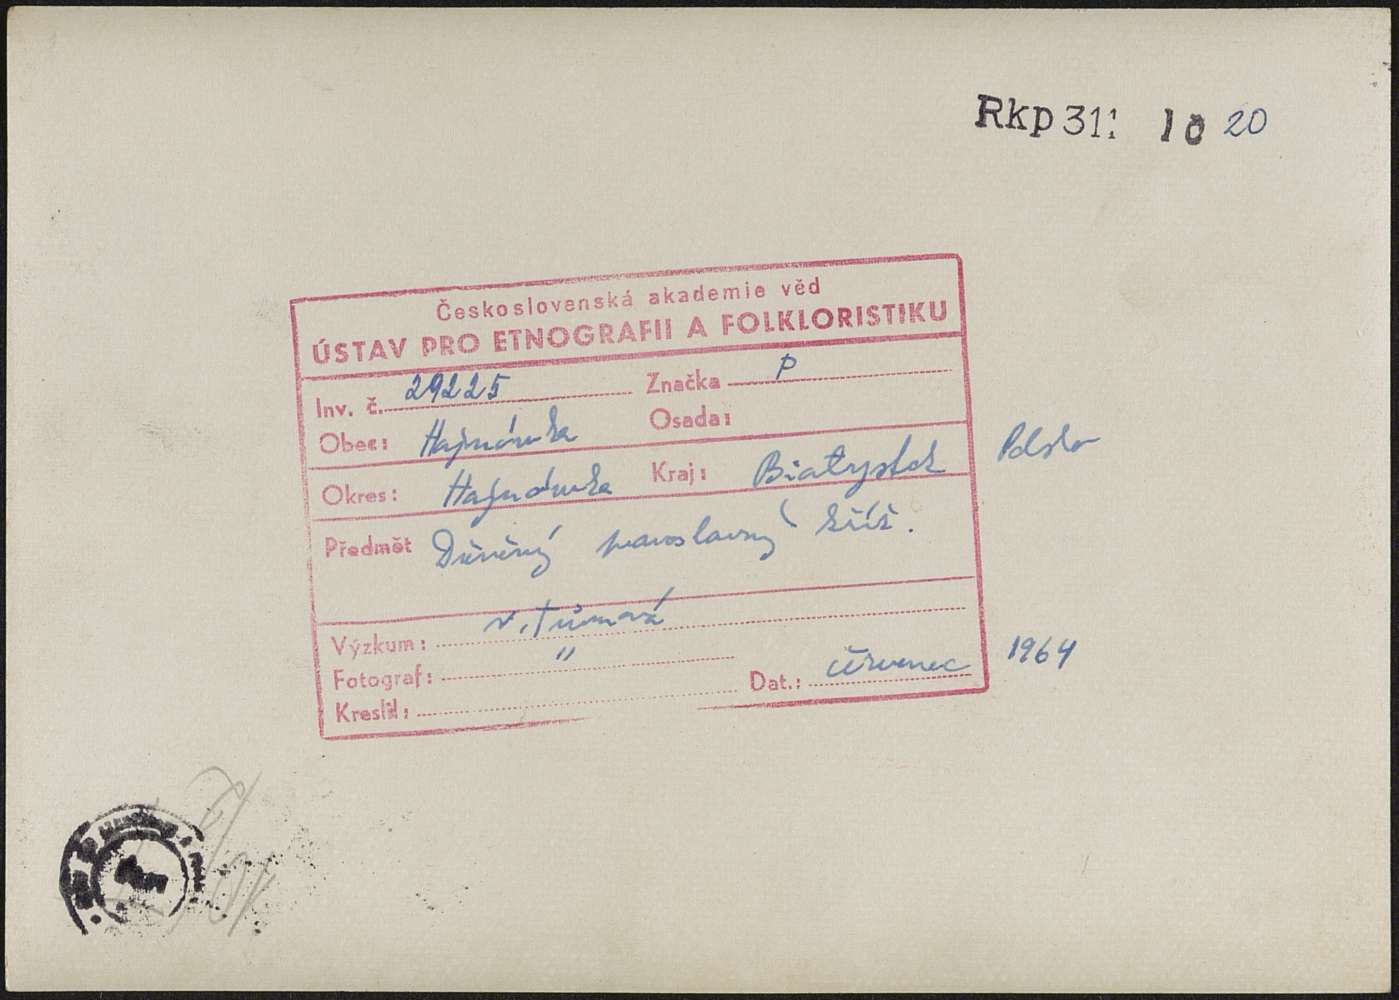 Rkp 311 10 20
Československá akademie věd
ÚSTAV PRO ETNOGRAFII A FOLKLORISTIKU
Inv. č. 29225 Značka P
Obec: Hajnówka Osada:
Okres: Hajnówka Kraj: Białystok Polsko
Předmět Dřevěný pravoslavný kříž.
Výzkum: V. Tůmová
Fotograf: "
Kreslil: Dat.: červenec 1964